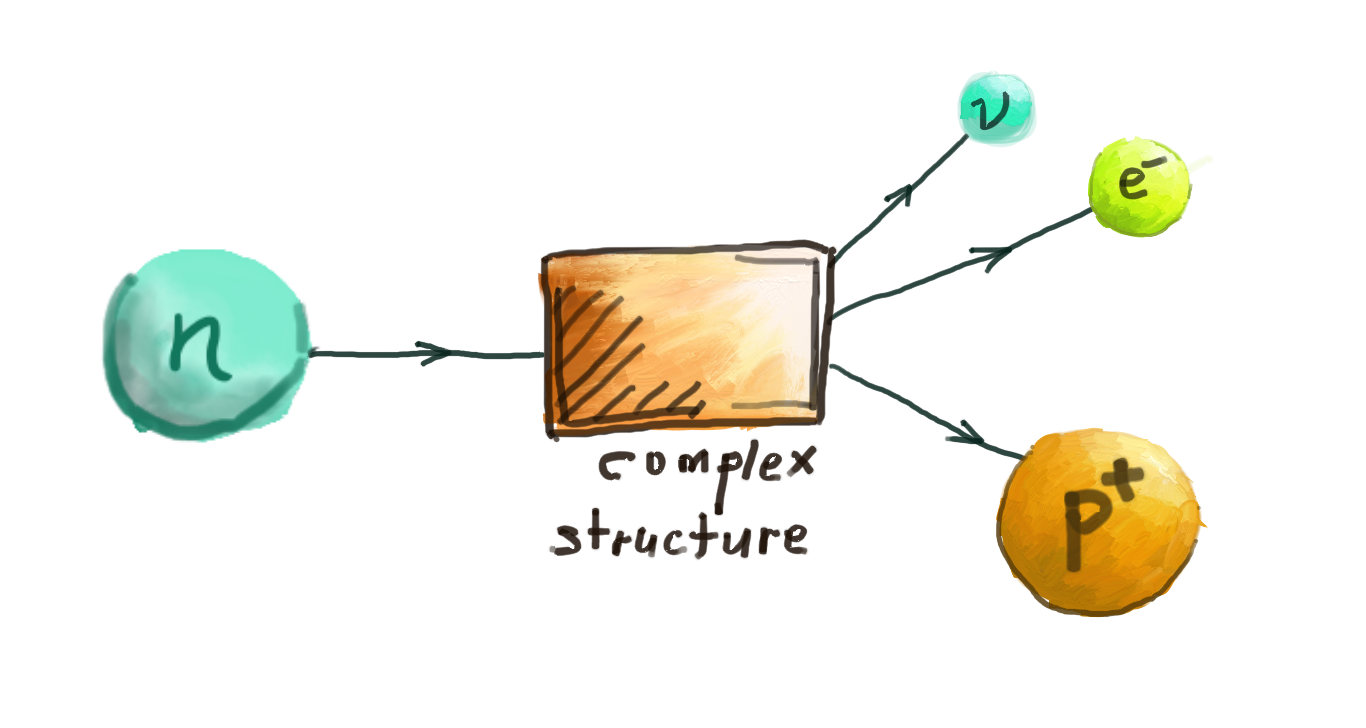 ν
e⁻
n
complex
structure
p⁺